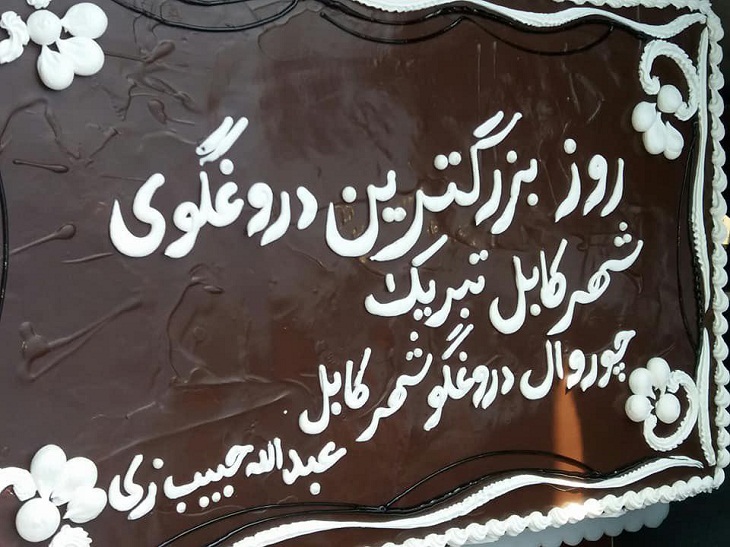 روز بزرگترین دروغگوی
شهر کابل تبریک
چوروال دروغگو شهر کابل
عبدالله حبیب زی